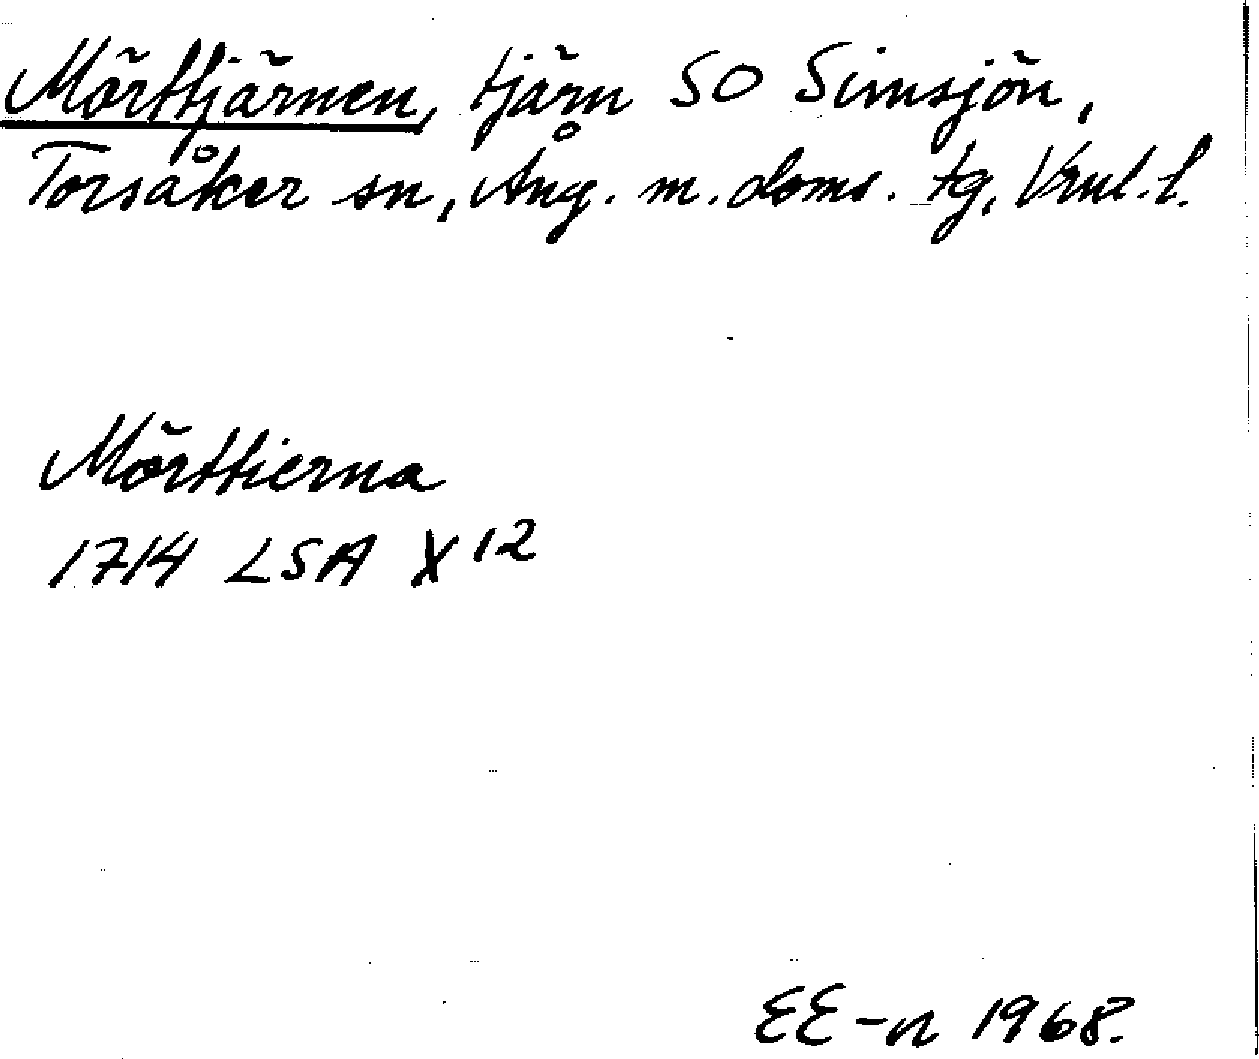 Mörttjärnen, tjärn SO Simsjön,
Torsåker sn, Ång. m. doms. tg, Vrnl. l.
Mörttierna
1714 LSA X 12
EE-n 1968.